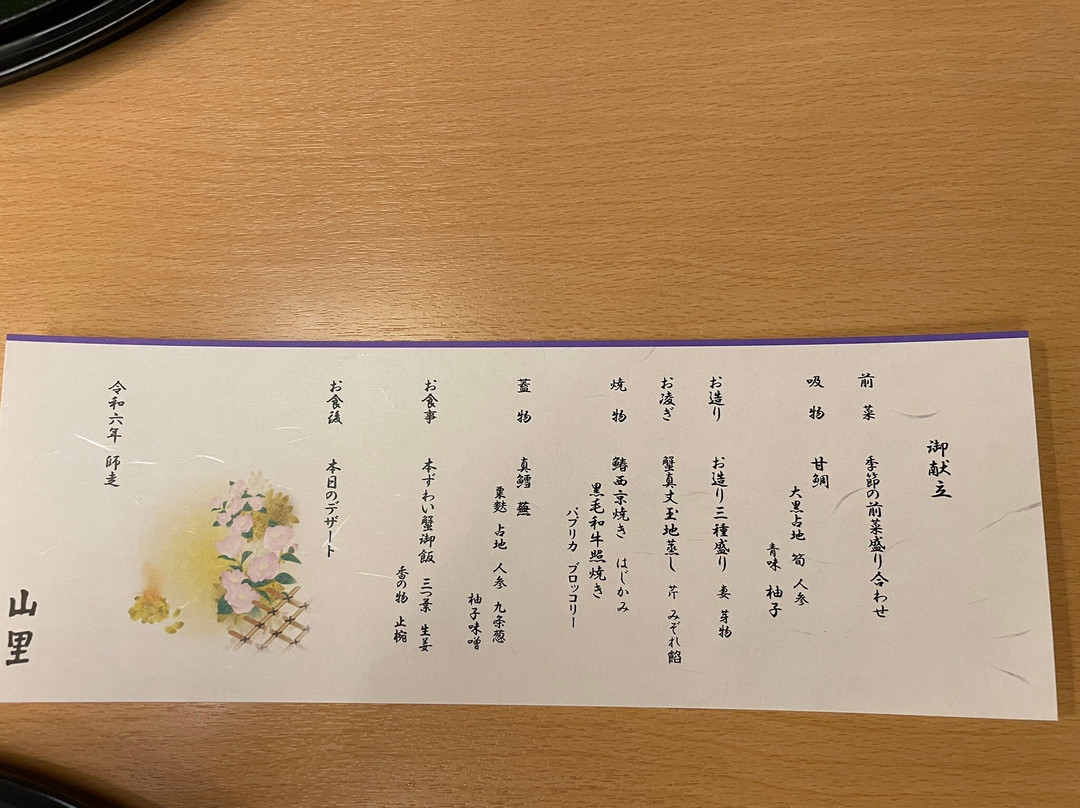 御献立
前菜 季節の前菜盛り合わせ
吸物 甘鯛
大黒占地 筍 人参
青味 柚子
お造り お造り三種盛り 妻 芽物
お凌ぎ 蟹真丈玉地蒸し 芹 みぞれ餡
焼物 鰆西京焼き はじかみ
黒毛和牛照焼き
パプリカ ブロッコリー
蓋物 真鱈 蕪
粟麩 占地 人参 九条葱
柚子味噌
お食事 本ずわい蟹御飯 三つ葉 生姜
香の物 止椀
お食後 本日のデザート
令和六年 師走
山里